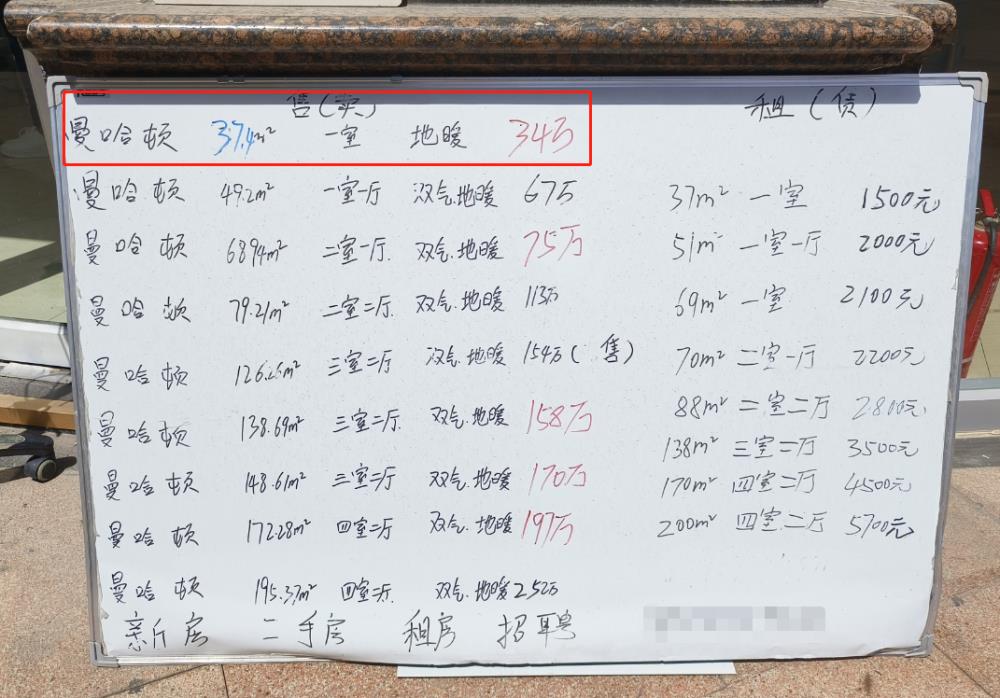 售(卖)
曼哈顿 37.4m² 一室 地暖 34万
曼哈顿 49.2m² 一室一厅 双气.地暖 67万
曼哈顿 68.94m² 二室一厅. 双气.地暖 75万
曼哈顿 79.21m² 二室二厅. 双气.地暖 113万
曼哈顿 126.26m² 三室二厅 双气.地暖 154万(售)
曼哈顿 138.69m² 三室二厅. 双气.地暖 158万
曼哈顿 148.61m² 三室二厅 双气.地暖 170万
曼哈顿 172.28m² 四室二厅 双气.地暖 197万
曼哈顿 195.37m² 四室二厅. 双气.地暖 252万
新房 二手房 租房 招聘
租(赁)
37m² 一室 1500元
51m² 一室一厅 2000元
69m² 一室 2100元
70m² 二室一厅 2200元
88m² 二室二厅 2800元
138m² 三室二厅 3500元
170m² 四室二厅 4500元
200m² 四室二厅 5700元